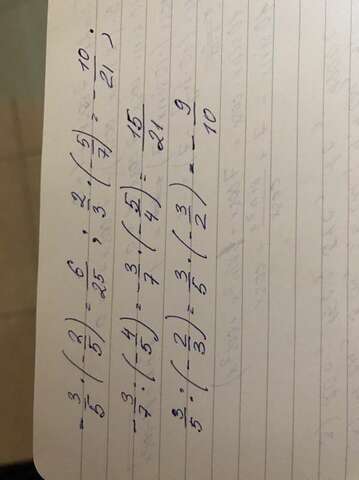 -3/5 · (-2/5) = 6/25 ; 2/3 · (-5/7) = -10/21 ;
-3/7 : (-4/5) = -3/7 · (-5/4) = 15/21
3/5 : (-2/3) = 3/5 · (-3/2) = -9/10